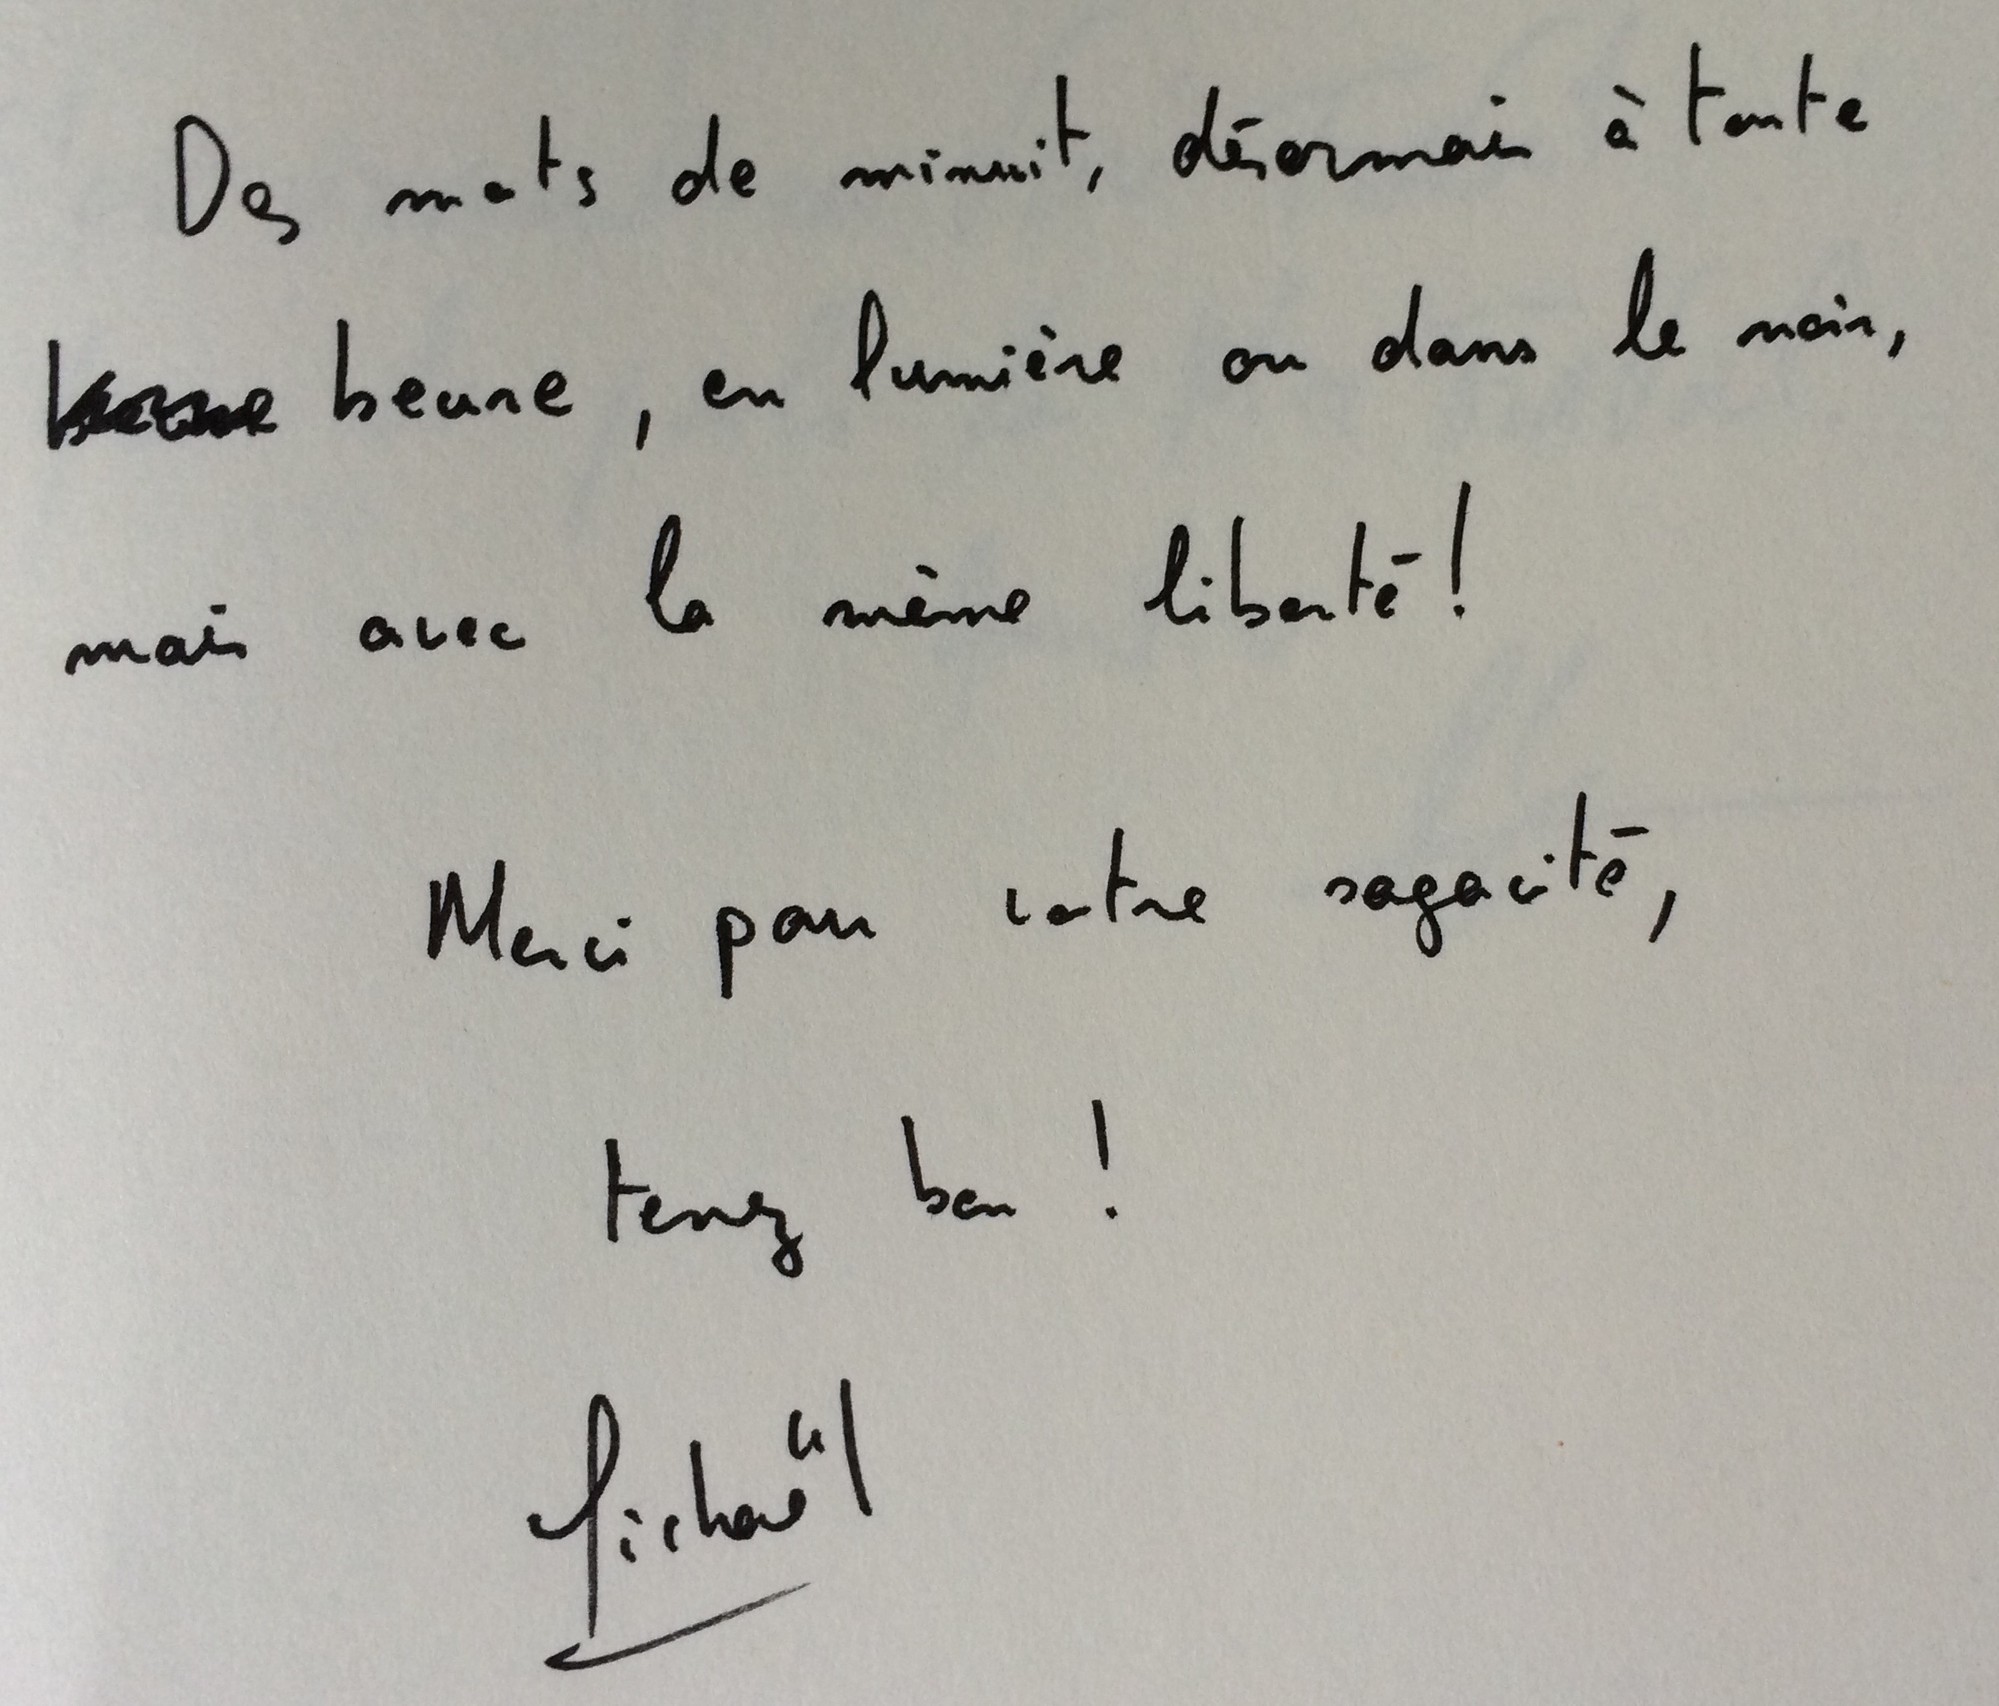 Des mots de minuit, désormais à toute
heure, en lumière ou dans le noir,
mais avec la même liberté !
Merci pour votre sagacité,
tenez bon !
Michaël